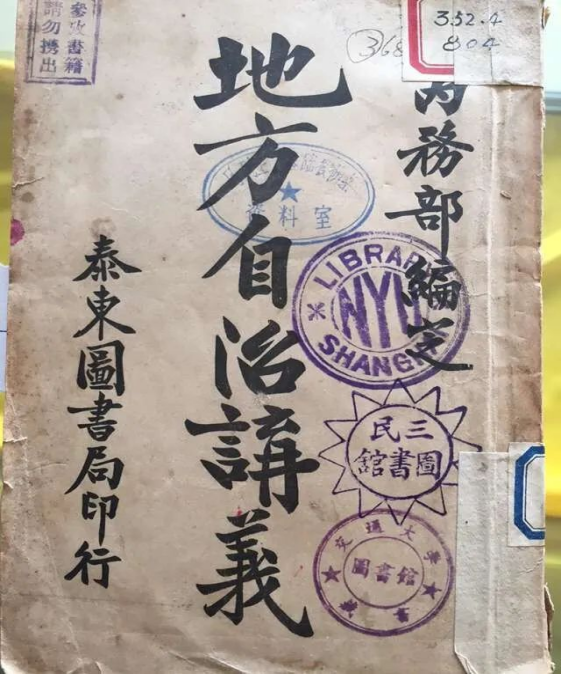 352.4
804
368
參攷書籍
請勿携出
內務部編定
地方自治講義
泰東圖書局印行
資料室
LIBRARY
NYU
SHANGHAI
三民
圖書館
交通大學
圖書館